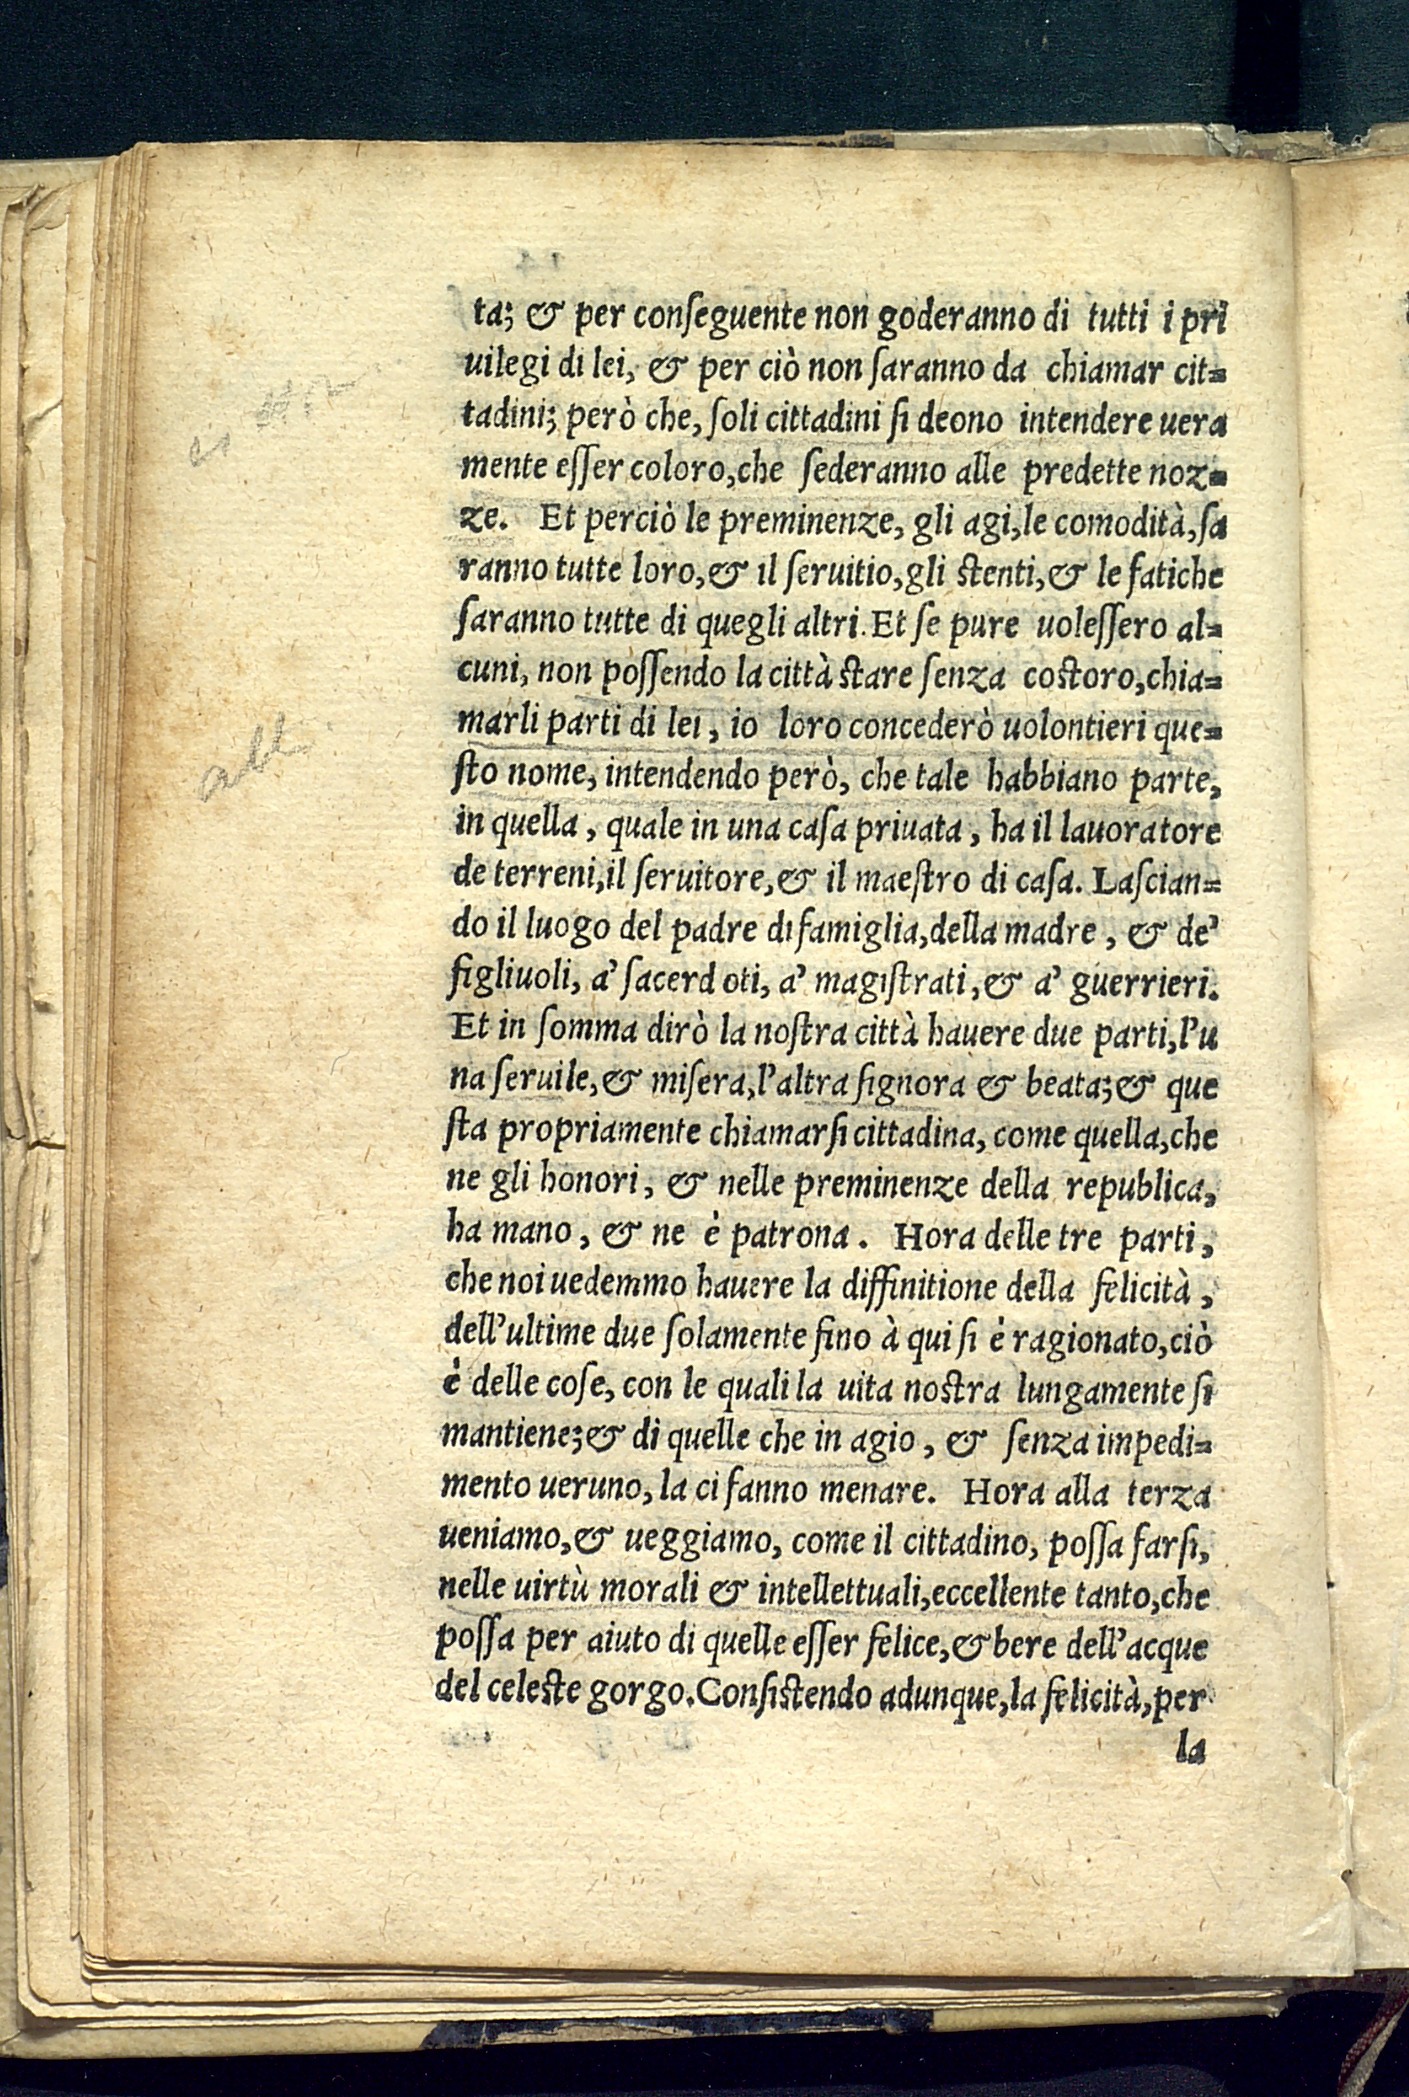 ta; & per conſeguente non goderanno di tutti i pri
uilegi di lei, & per ciò non ſaranno da chiamar cit=
tadini; però che, ſoli cittadini ſi deono intendere uera
mente eſſer coloro, che ſederanno alle predette noz=
ze. Et perciò le preminenze, gli agi, le comodità, ſa
ranno tutte loro, & il ſeruitio, gli ſtenti, & le fatiche
ſaranno tutte di quegli altri. Et ſe pure uoleſſero al=
cuni, non poſſendo la città ſtare ſenza coſtoro, chia=
marli parti di lei, io loro concederò uolontieri que=
ſto nome, intendendo però, che tale habbiano parte,
in quella, quale in una caſa priuata, ha il lauoratore
de terreni, il ſeruitore, & il maeſtro di caſa. Laſcian=
do il luogo del padre di famiglia, della madre, & de'
figliuoli, a' ſacerd oti, a' magiſtrati, & a' guerrieri.
Et in ſomma dirò la noſtra città hauere due parti, l'u
na ſeruile, & miſera, l'altra ſignora & beata; & que
ſta propriamente chiamarſi cittadina, come quella, che
ne gli honori, & nelle preminenze della republica,
ha mano, & ne è patrona. Hora delle tre parti,
che noi uedemmo hauere la diffinitione della felicità,
dell'ultime due ſolamente fino à qui ſi è ragionato, ciò
è delle coſe, con le quali la uita noſtra lungamente ſi
mantiene; & di quelle che in agio, & ſenza impedi=
mento ueruno, la ci fanno menare. Hora alla terza
ueniamo, & ueggiamo, come il cittadino, poſſa farſi,
nelle uirtù morali & intellettuali, eccellente tanto, che
poſſa per aiuto di quelle eſſer felice, & bere dell'acque
del celeſte gorgo. Conſiſtendo adunque, la felicità, per
la